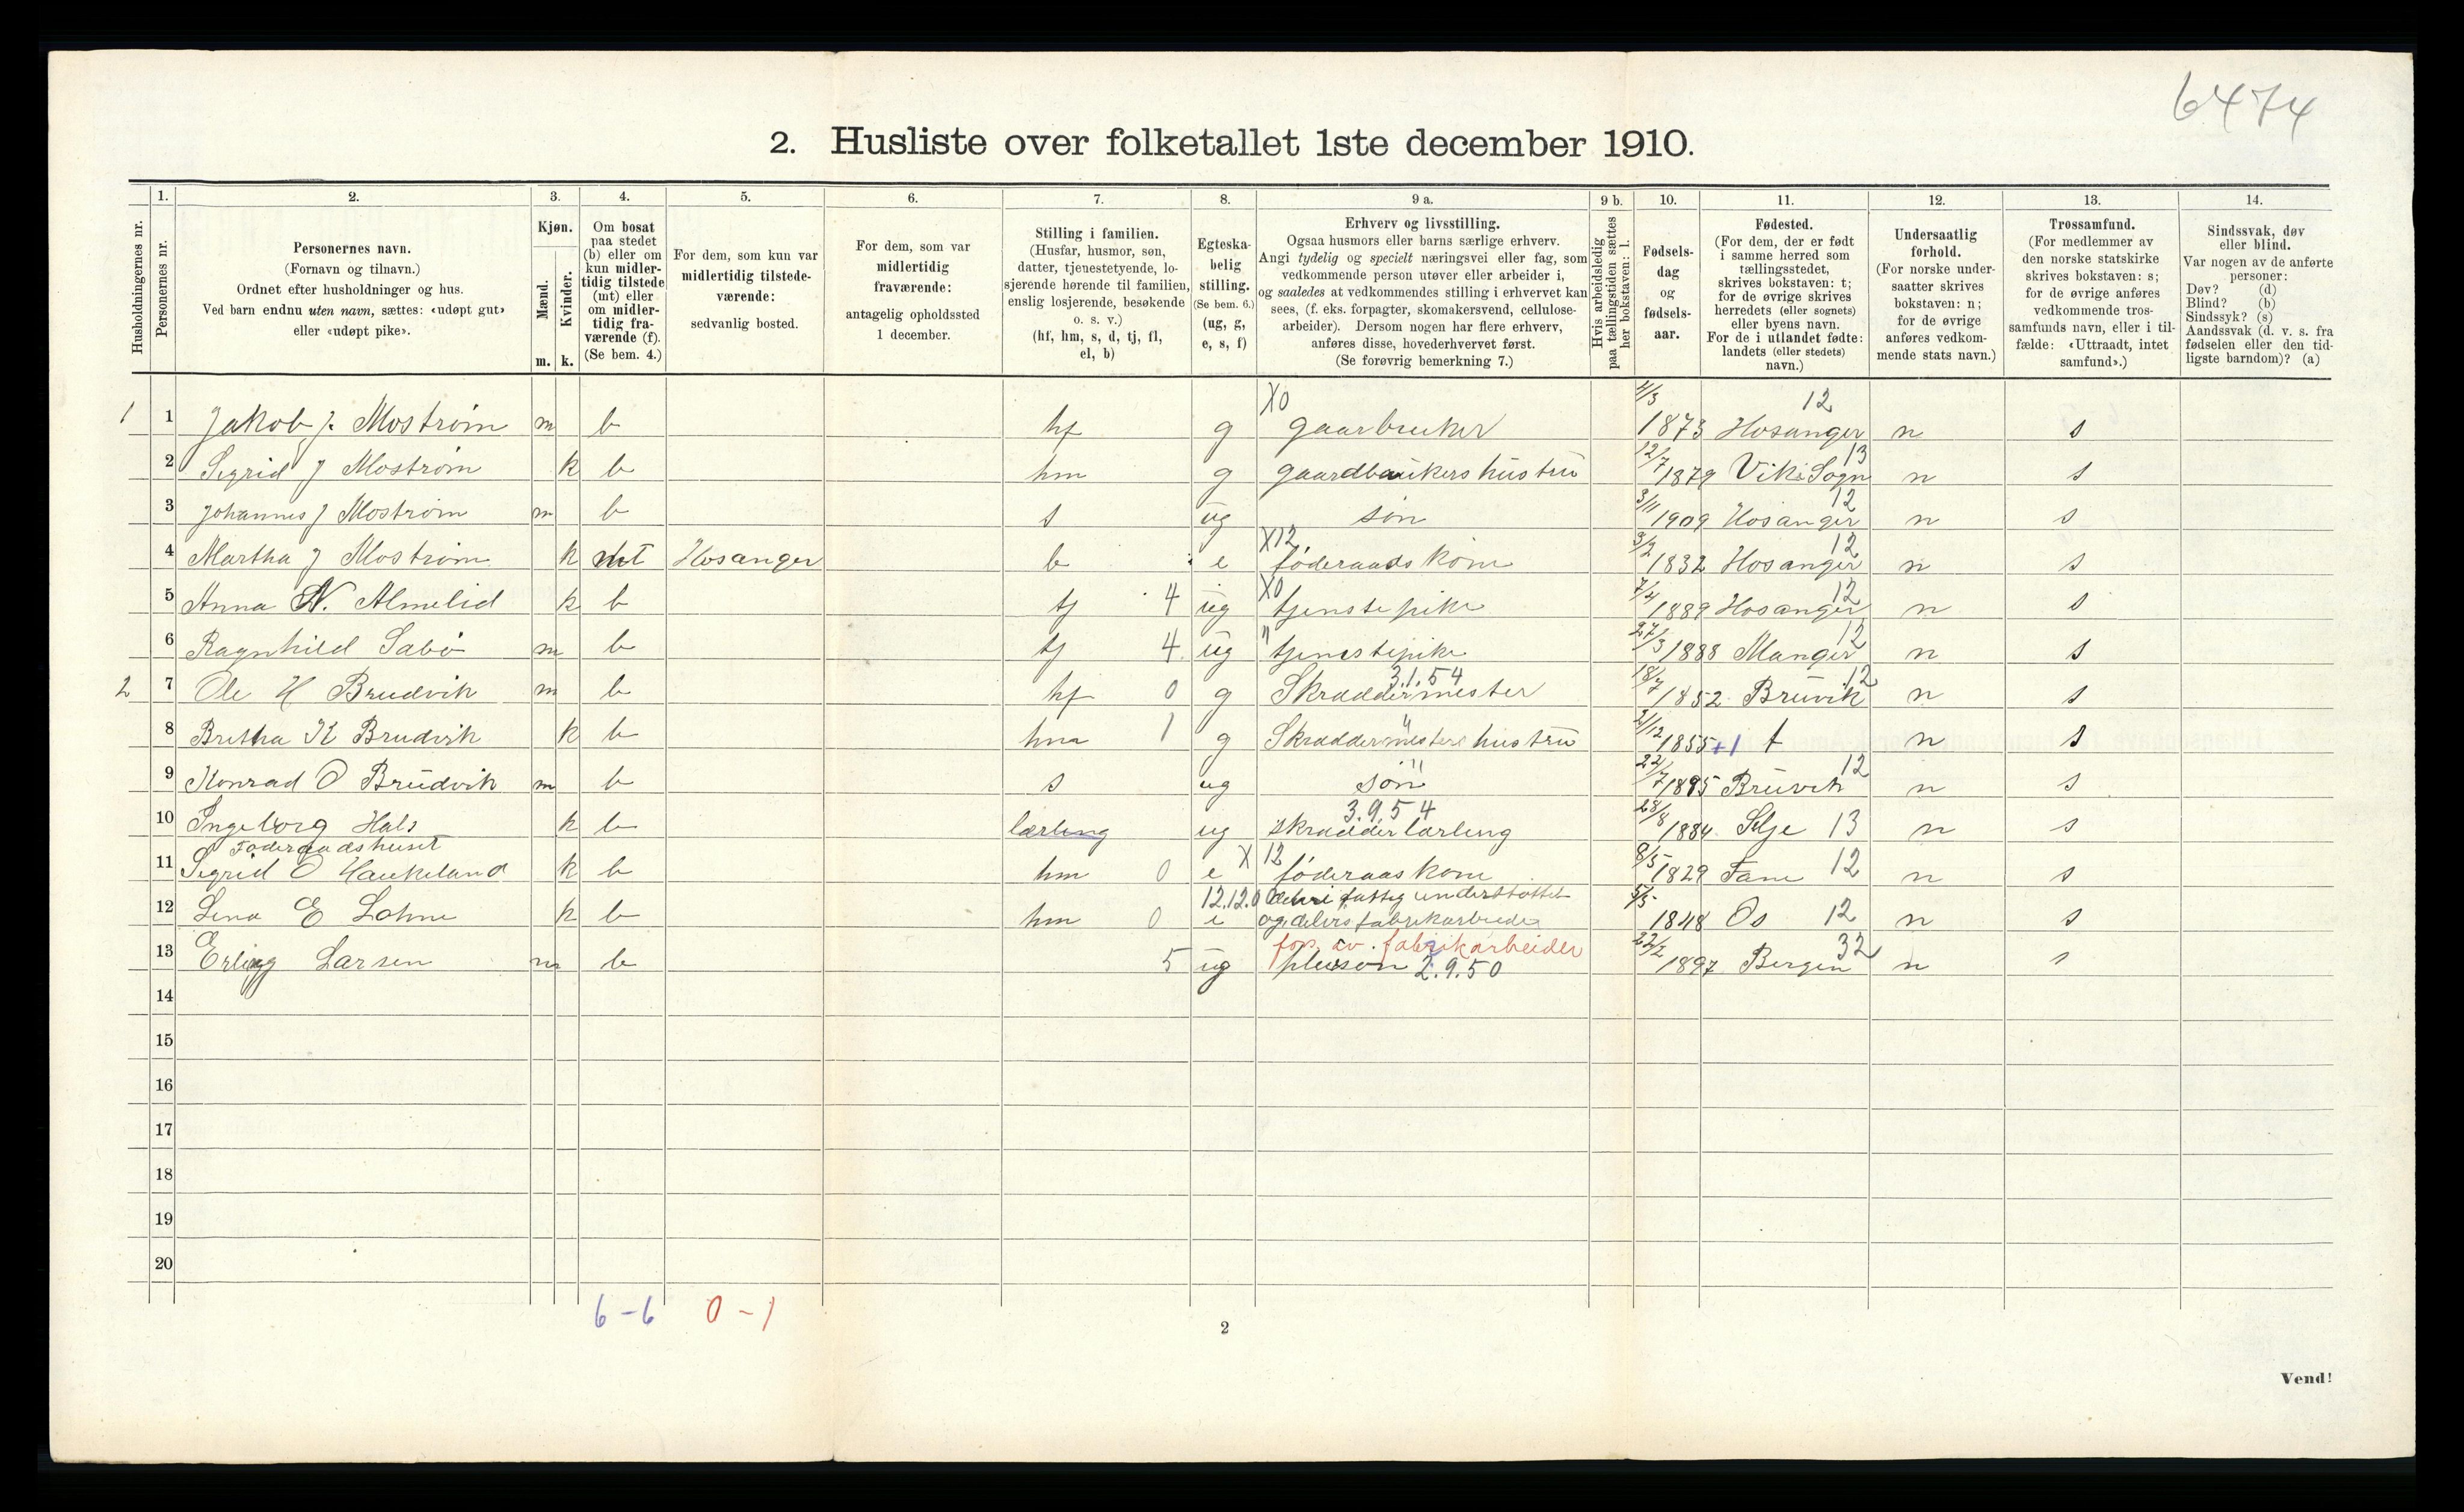 6474
2. Husliste over folketallet 1ste december 1910.
Husholdningernes nr.
1.
Personernes nr.
2.
Personernes navn.
(Fornavn og tilnavn.)
Ordnet efter husholdninger og hus.
Ved barn endnu uten navn, sættes: «udøpt gut»
eller «udøpt pike».
3.
Kjøn.
Mænd.
Kvinder.
m. k.
4.
Om bosat
paa stedet
(b) eller om
kun midler-
tidig tilstede
(mt) eller
om midler-
tidig fra-
værende (f).
(Se bem. 4.)
5.
For dem, som kun var
midlertidig tilstede-
værende:
sedvanlig bosted.
6.
For dem, som var
midlertidig
fraværende:
antagelig opholdssted
1 december.
7.
Stilling i familien.
(Husfar, husmor, søn,
datter, tjenestetyende, lo-
sjerende hørende til familien,
enslig losjerende, besøkende
o. s. v.)
(hf, hm, s, d, tj, fl,
el, b)
8.
Egteska-
belig
stilling.
(Se bem. 6.)
(ug, g,
e, s, f)
9 a.
Erhverv og livsstilling.
Ogsaa husmors eller barns særlige erhverv.
Angi tydelig og specielt næringsvei eller fag, som
vedkommende person utøver eller arbeider i,
og saaledes at vedkommendes stilling i erhvervet kan
sees, (f. eks. forpagter, skomakersvend, cellulose-
arbeider). Dersom nogen har flere erhverv,
anføres disse, hovederhvervet først.
(Se forøvrig bemerkning 7.)
9 b.
Hvis arbeidsledig
paa tællingstiden sættes
her bokstaven: l.
10.
Fødsels-
dag
og
fødsels-
aar.
11.
Fødested.
(For dem, der er født
i samme herred som
tællingsstedet,
skrives bokstaven: t;
for de øvrige skrives
herredets (eller sognets)
eller byens navn.
For de i utlandet fødte:
landets (eller stedets)
navn.)
12.
Undersaatlig
forhold.
(For norske under-
saatter skrives
bokstaven: n;
for de øvrige
anføres vedkom-
mende stats navn.)
13.
Trossamfund.
(For medlemmer av
den norske statskirke
skrives bokstaven: s;
for de øvrige anføres
vedkommende tros-
samfunds navn, eller i til-
fælde: «Uttraadt, intet
samfund».)
14.
Sindssvak, døv
eller blind.
Var nogen av de anførte
personer:
Døv? (d)
Blind? (b)
Sindssyk? (s)
Aandssvak (d. v. s. fra
fødselen eller den tid-
ligste barndom)? (a)
X0 4/3 12
1 1 Jakob J. Mostrøm m b hf g gaarbruker 1873 Hosanger n s
2 Sigrid J Mostrøm k b hm g gaardbrukers hustru 12/7 1879 Vik i Sogn 13 n s
3 Johannes J Mostrøm m b s ug søn 3/11 1909 Hosanger 12 n s
4 Martha J Mostrøm k mt Hosanger b e X12 føderaadskone 3/2 1832 Hosanger 12 n s
5 Anna N. Almelid k b tj 4 ug X0 tjenstepike 7/4 1889 Hosanger 12 n s
6 Ragnhild Sabø m b tj 4 ug " tjenestepike 27/3 1888 Manger 12 n s
2 7 Ole H Brudvik m b hf 0 g 3.1.54 Skræddermester 18/7 1852 Bruvik 12 n s
8 Bretha K Brudvik k b hm 1 g " Skræddermesters hustru 2/12 1855 +1 t n s
9 Konrad O Brudvik m b s ug " søn 22/7 1895 Bruvik 12 n s
10 Ingeborg Hals k b lærling ug 3.9.54 skrædderlærling 28/8 1884 Selje 13 n s
Føderaadshuset
11 Sigrid O Haukeland k b hm 0 e X 12 føderaaskone 8/5 1829 Fane 12 n s
12 Lena E Lohne k b hm 0 e 12.12.0 delvis fattig understøttet
og delvis fabrikarbeider 5/5 1848 Os 12 n s
fors. av fabrikarbeider
13 Erling Larsen m b 5 ug pleisøn 2.9.50 22/2 1897 Bergen 32 n s
14
15
16
17
18
19
20
6 - 6 0 - 1
2
Vend!